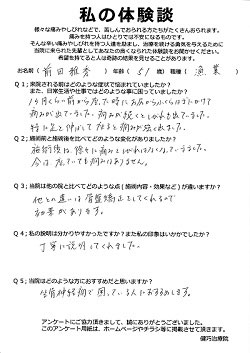 私の体験談
様々な痛みやしびれなどで、苦しんでおられる方たちがたくさんおられます。
痛みを持つ人はひとりでは不安になるものです。
そんな辛い痛みやしびれを持つ人達を励まし、治療を続ける勇気を与えるために
当院に来られた先輩としてあなたの良くなられた体験談をお聞かせください。
希望を持てることが人は奇跡の結果を見せることがあります。
お名前（前田雅 ）年齢（51）歳 職種（漁業）
Q１；来院される前はどのような症状で悩まれていましたか？
また、日常生活や仕事ではどのような事に困っていましたか？
痛みが出ていました。
特に足を伸ばしてたなると痛みが出ました。
Q２；施術前と施術後を比べてどのような変化がありましたか？
施術後は徐々に痛みとしびれはなくなっていきました。
今は立っていても痛みはありません。
Q３；当院は他の院と比べてどのような点（施術内容・効果など）が違いますか？
他との違いは骨盤矯正をしてくれるので
効果があります。
Q４；私の説明は分かりやすかったですか？また私の印象はいかがでしたか？
丁寧に説明してくれました。
Q５；当院はどのような方におすすめだと思いますか？
坐骨神経痛で困っている人におすすめします。
アンケートにご協力頂きまして、誠にありがとうございました。
このアンケート用紙は、ホームページやチラシ等に掲載させて頂きます。
健巧治療院